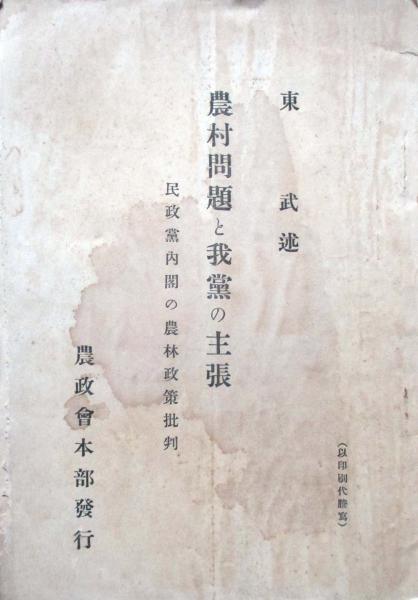 （以印刷代謄寫）
東武述
農村問題と我黨の主張
民政黨內閣の農林政策批判
農政會本部發行